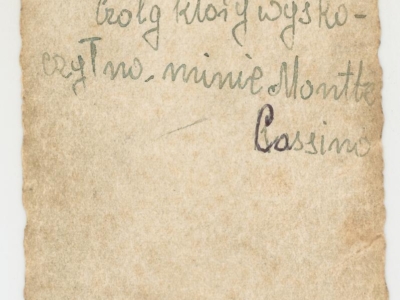 Czołg który wysko-
czył na minie Montte
Cassino